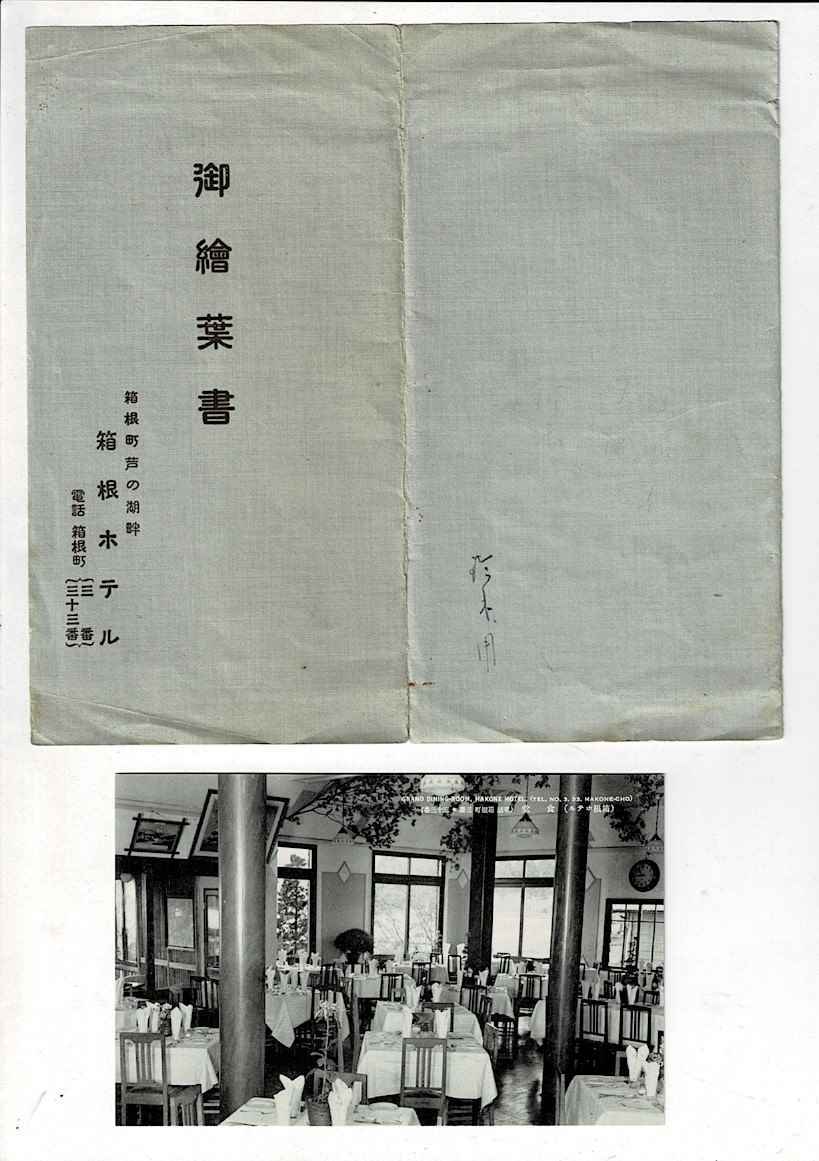 御繪葉書
箱根町芦の湖畔
箱根ホテル
電話 箱根町
三番
三十三番
GRAND DINING-ROOM, HAKONE HOTEL, (TEL. NO. 3, 33, HAKONE-CHO)
(箱根ホテル) 食堂